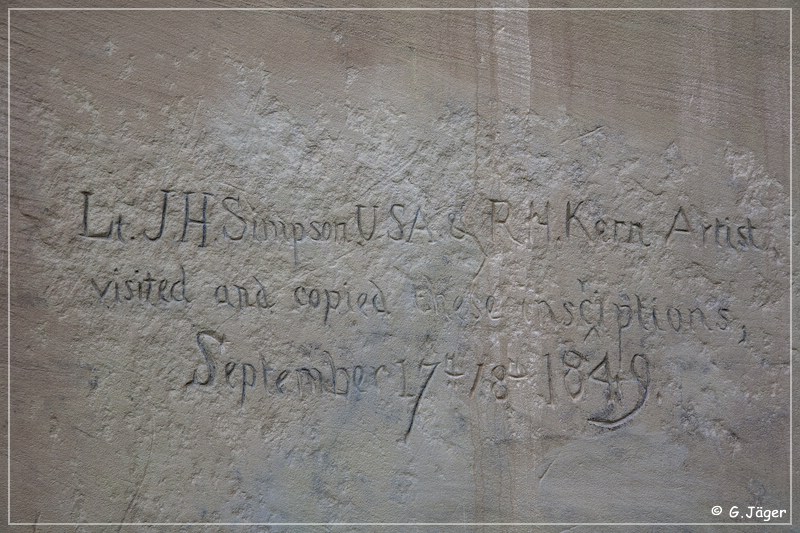 Lt. J.H. Simpson. U.S.A. & R.H. Kern Artist,
visited and copied these insciptions,
September 17th 18th 1849.
© G.Jäger